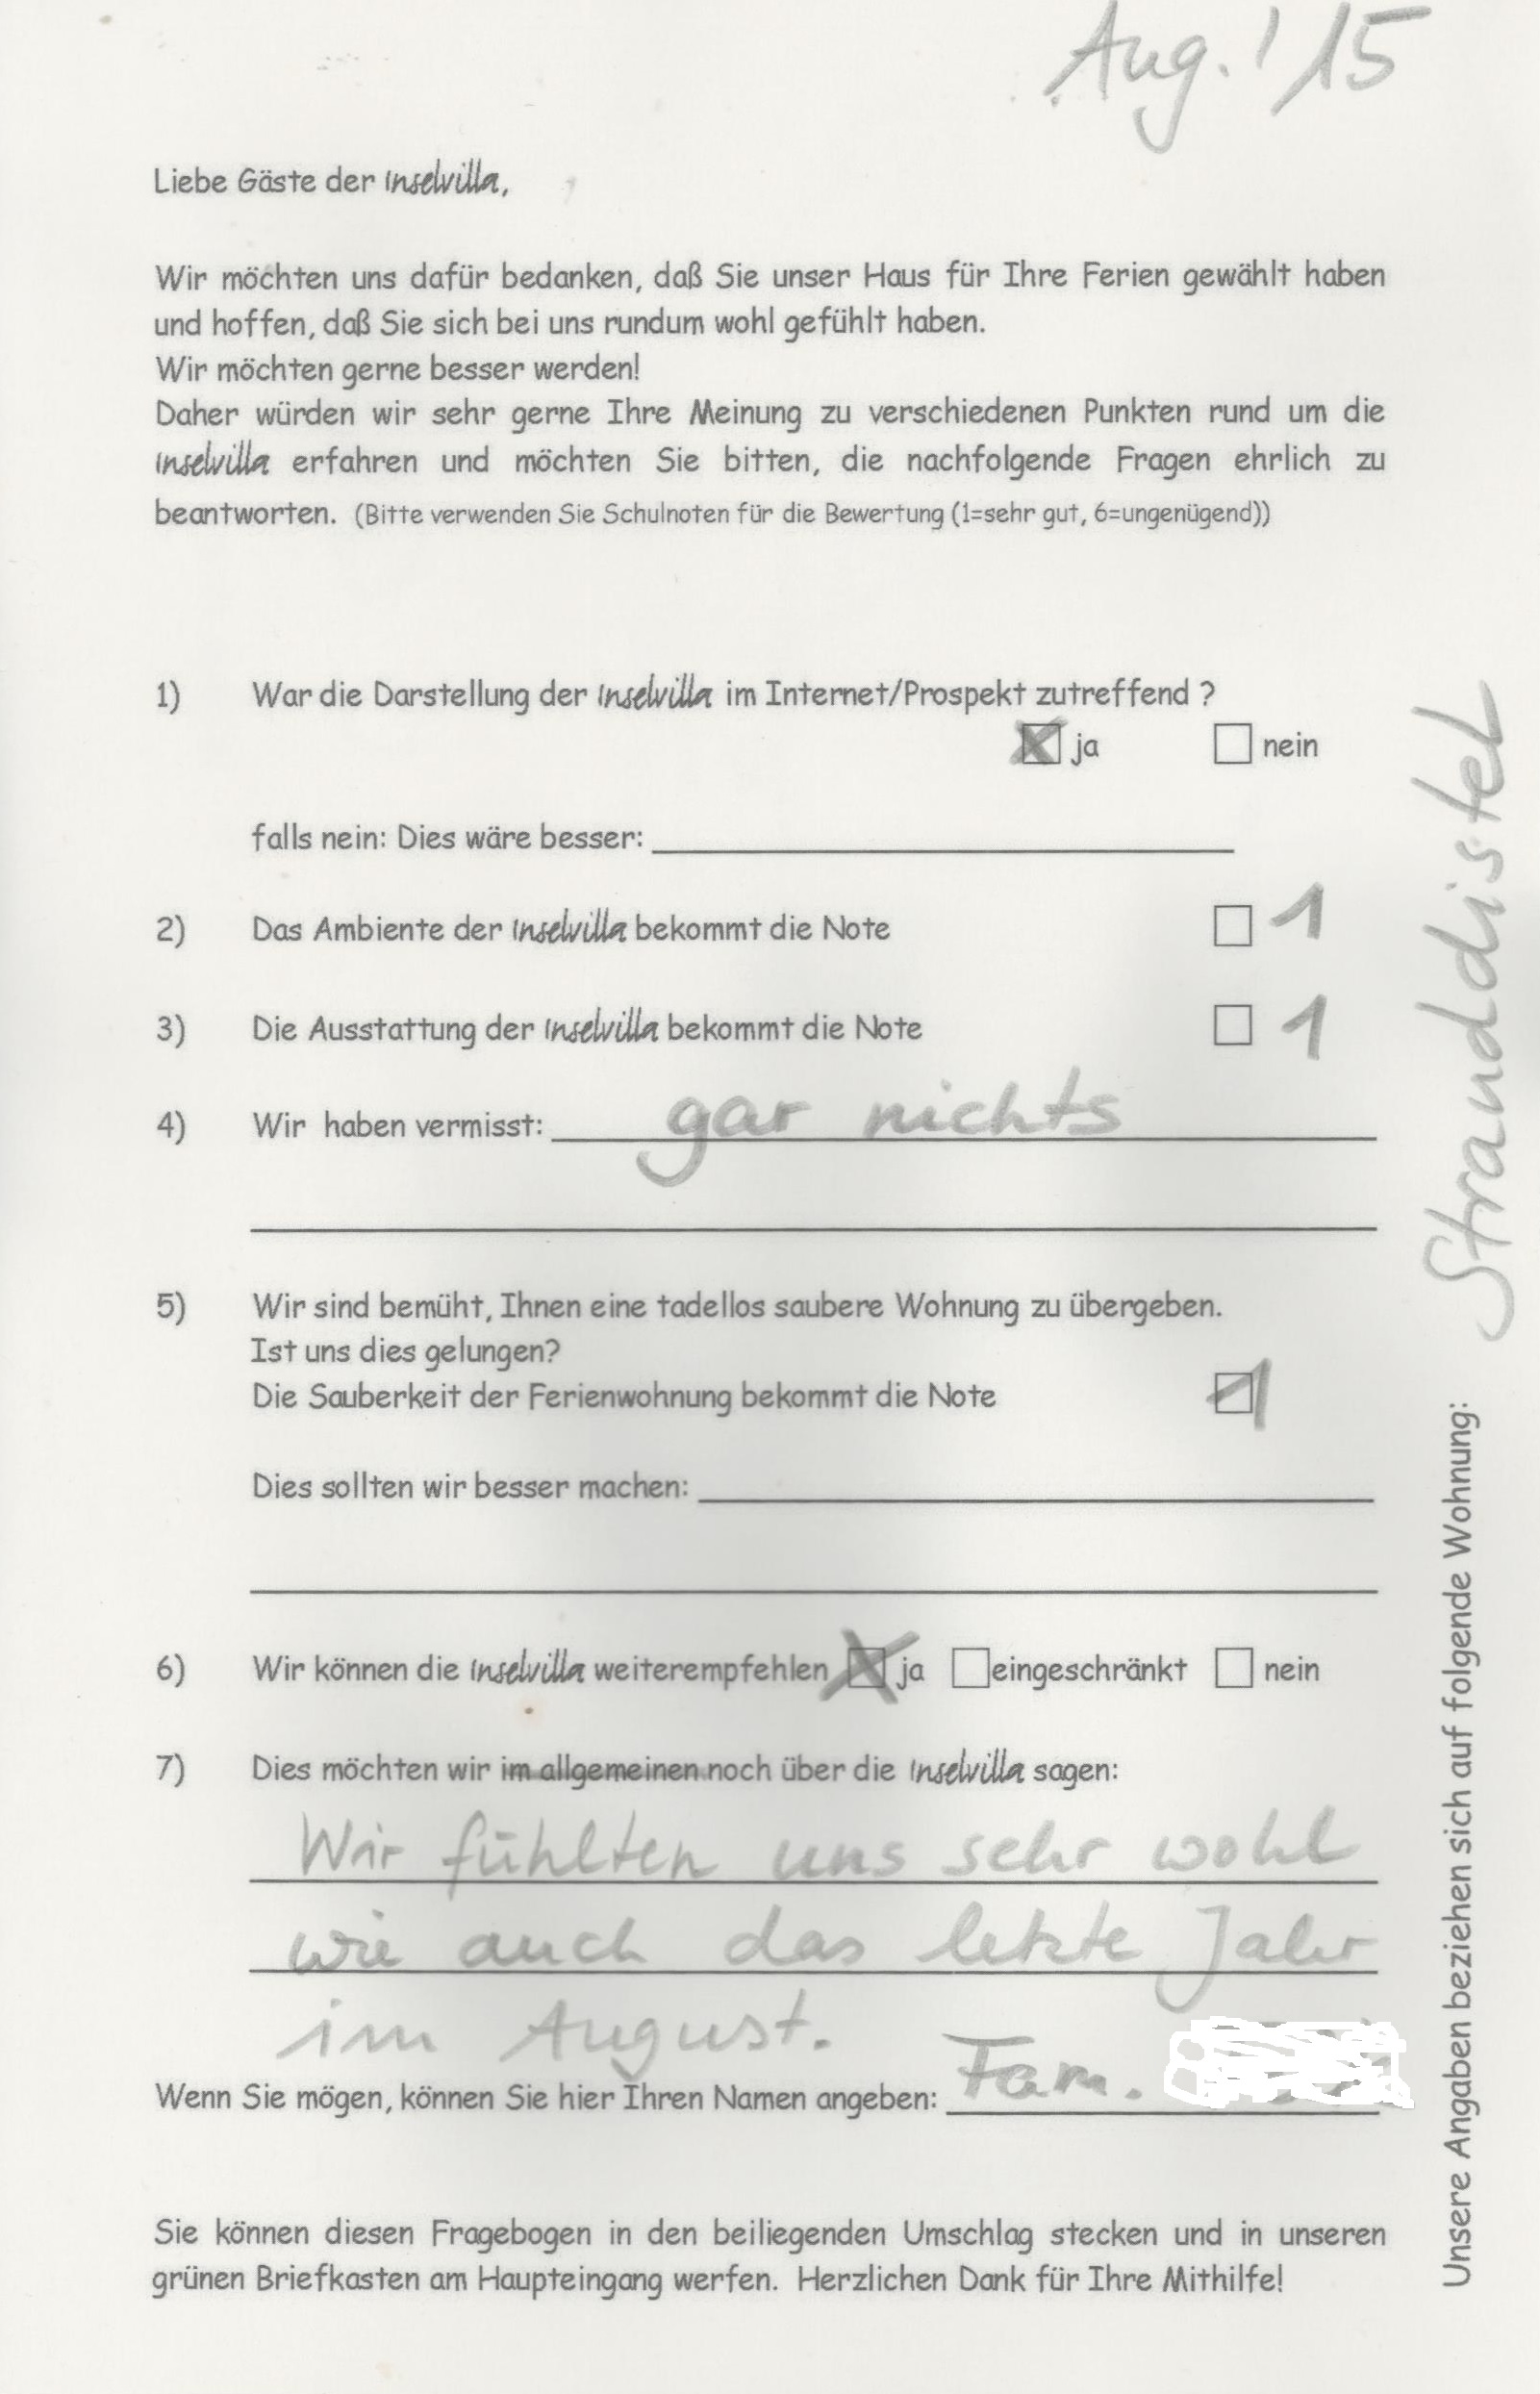 Aug. '15
Liebe Gäste der Inselvilla,
Wir möchten uns dafür bedanken, daß Sie unser Haus für Ihre Ferien gewählt haben
und hoffen, daß Sie sich bei uns rundum wohl gefühlt haben.
Wir möchten gerne besser werden!
Daher würden wir sehr gerne Ihre Meinung zu verschiedenen Punkten rund um die
Inselvilla erfahren und möchten Sie bitten, die nachfolgende Fragen ehrlich zu
beantworten. (Bitte verwenden Sie Schulnoten für die Bewertung (1=sehr gut, 6=ungenügend))
1) War die Darstellung der Inselvilla im Internet/Prospekt zutreffend ?
ja nein
falls nein: Dies wäre besser:
2) Das Ambiente der Inselvilla bekommt die Note 1
3) Die Ausstattung der Inselvilla bekommt die Note 1
4) Wir haben vermisst: gar nichts
5) Wir sind bemüht, Ihnen eine tadellos saubere Wohnung zu übergeben.
Ist uns dies gelungen?
Die Sauberkeit der Ferienwohnung bekommt die Note 1
Dies sollten wir besser machen:
6) Wir können die Inselvilla weiterempfehlen ja eingeschränkt nein
7) Dies möchten wir im allgemeinen noch über die Inselvilla sagen:
Wir fühlten uns sehr wohl
wie auch das letzte Jahr
im August.
Wenn Sie mögen, können Sie hier Ihren Namen angeben: Fam.
Sie können diesen Fragebogen in den beiliegenden Umschlag stecken und in unseren
grünen Briefkasten am Haupteingang werfen. Herzlichen Dank für Ihre Mithilfe!
Unsere Angaben beziehen sich auf folgende Wohnung: Stranddistel